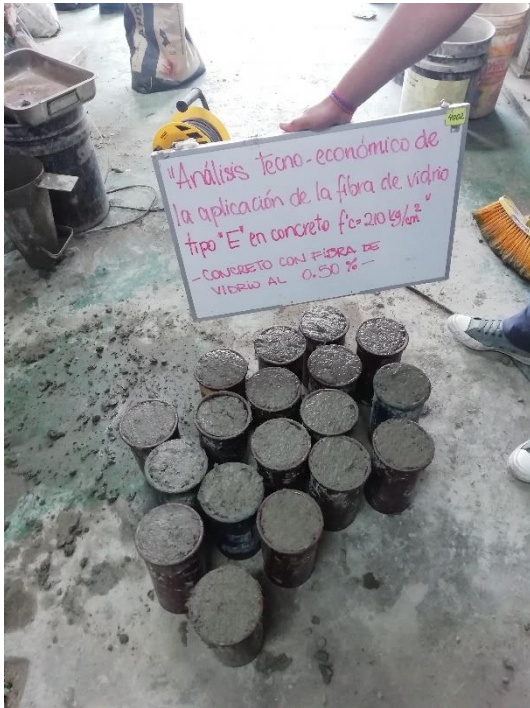 "Análisis tecno-económico de
la aplicación de la fibra de vidrio
tipo "E" en concreto f'c=210 kg/cm²"
-CONCRETO CON FIBRA DE
VIDRIO AL 0.50 %-